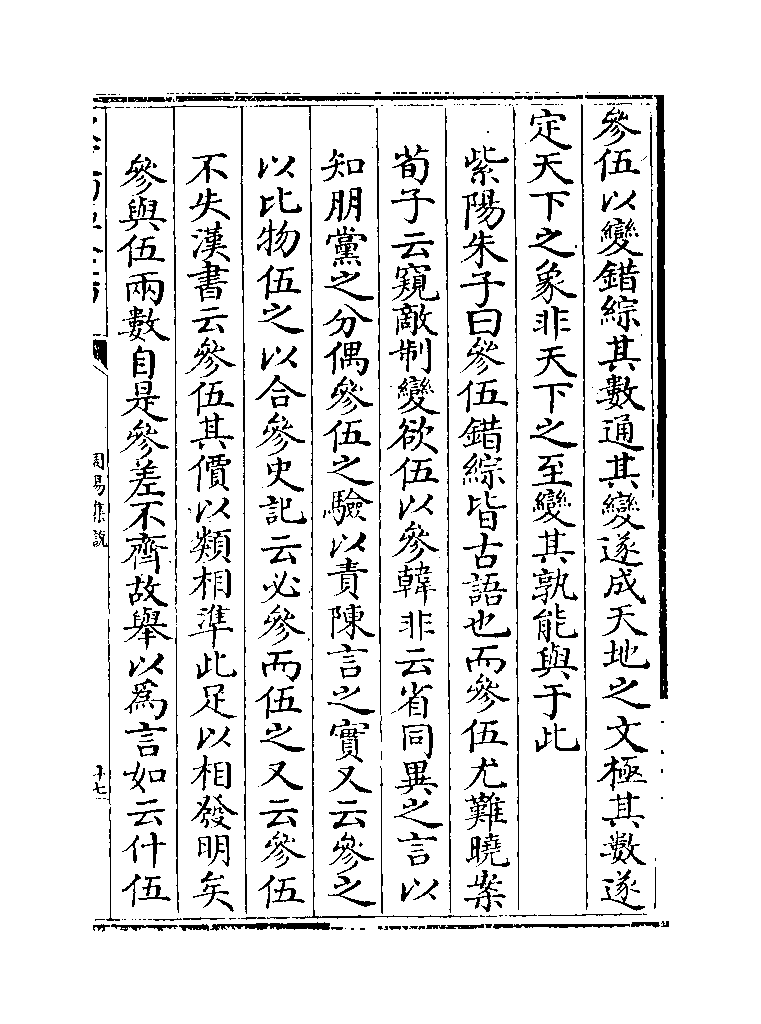 參伍以變錯綜其數通其變遂成天地之文極其數遂
定天下之象非天下之至變其孰能與于此
紫陽朱子曰參伍錯綜皆古語也而參伍尤難曉案
荀子云窺敵制變欲伍以參韓非云省同異之言以
知朋黨之分偶參伍之驗以責陳言之實又云參之
以比物伍之以合參史記云必參而伍之又云參伍
不失漢書云參伍其價以類相準此足以相發明矣
參與伍兩數自是參差不齊故舉以為言如云什伍
周易集說
十七